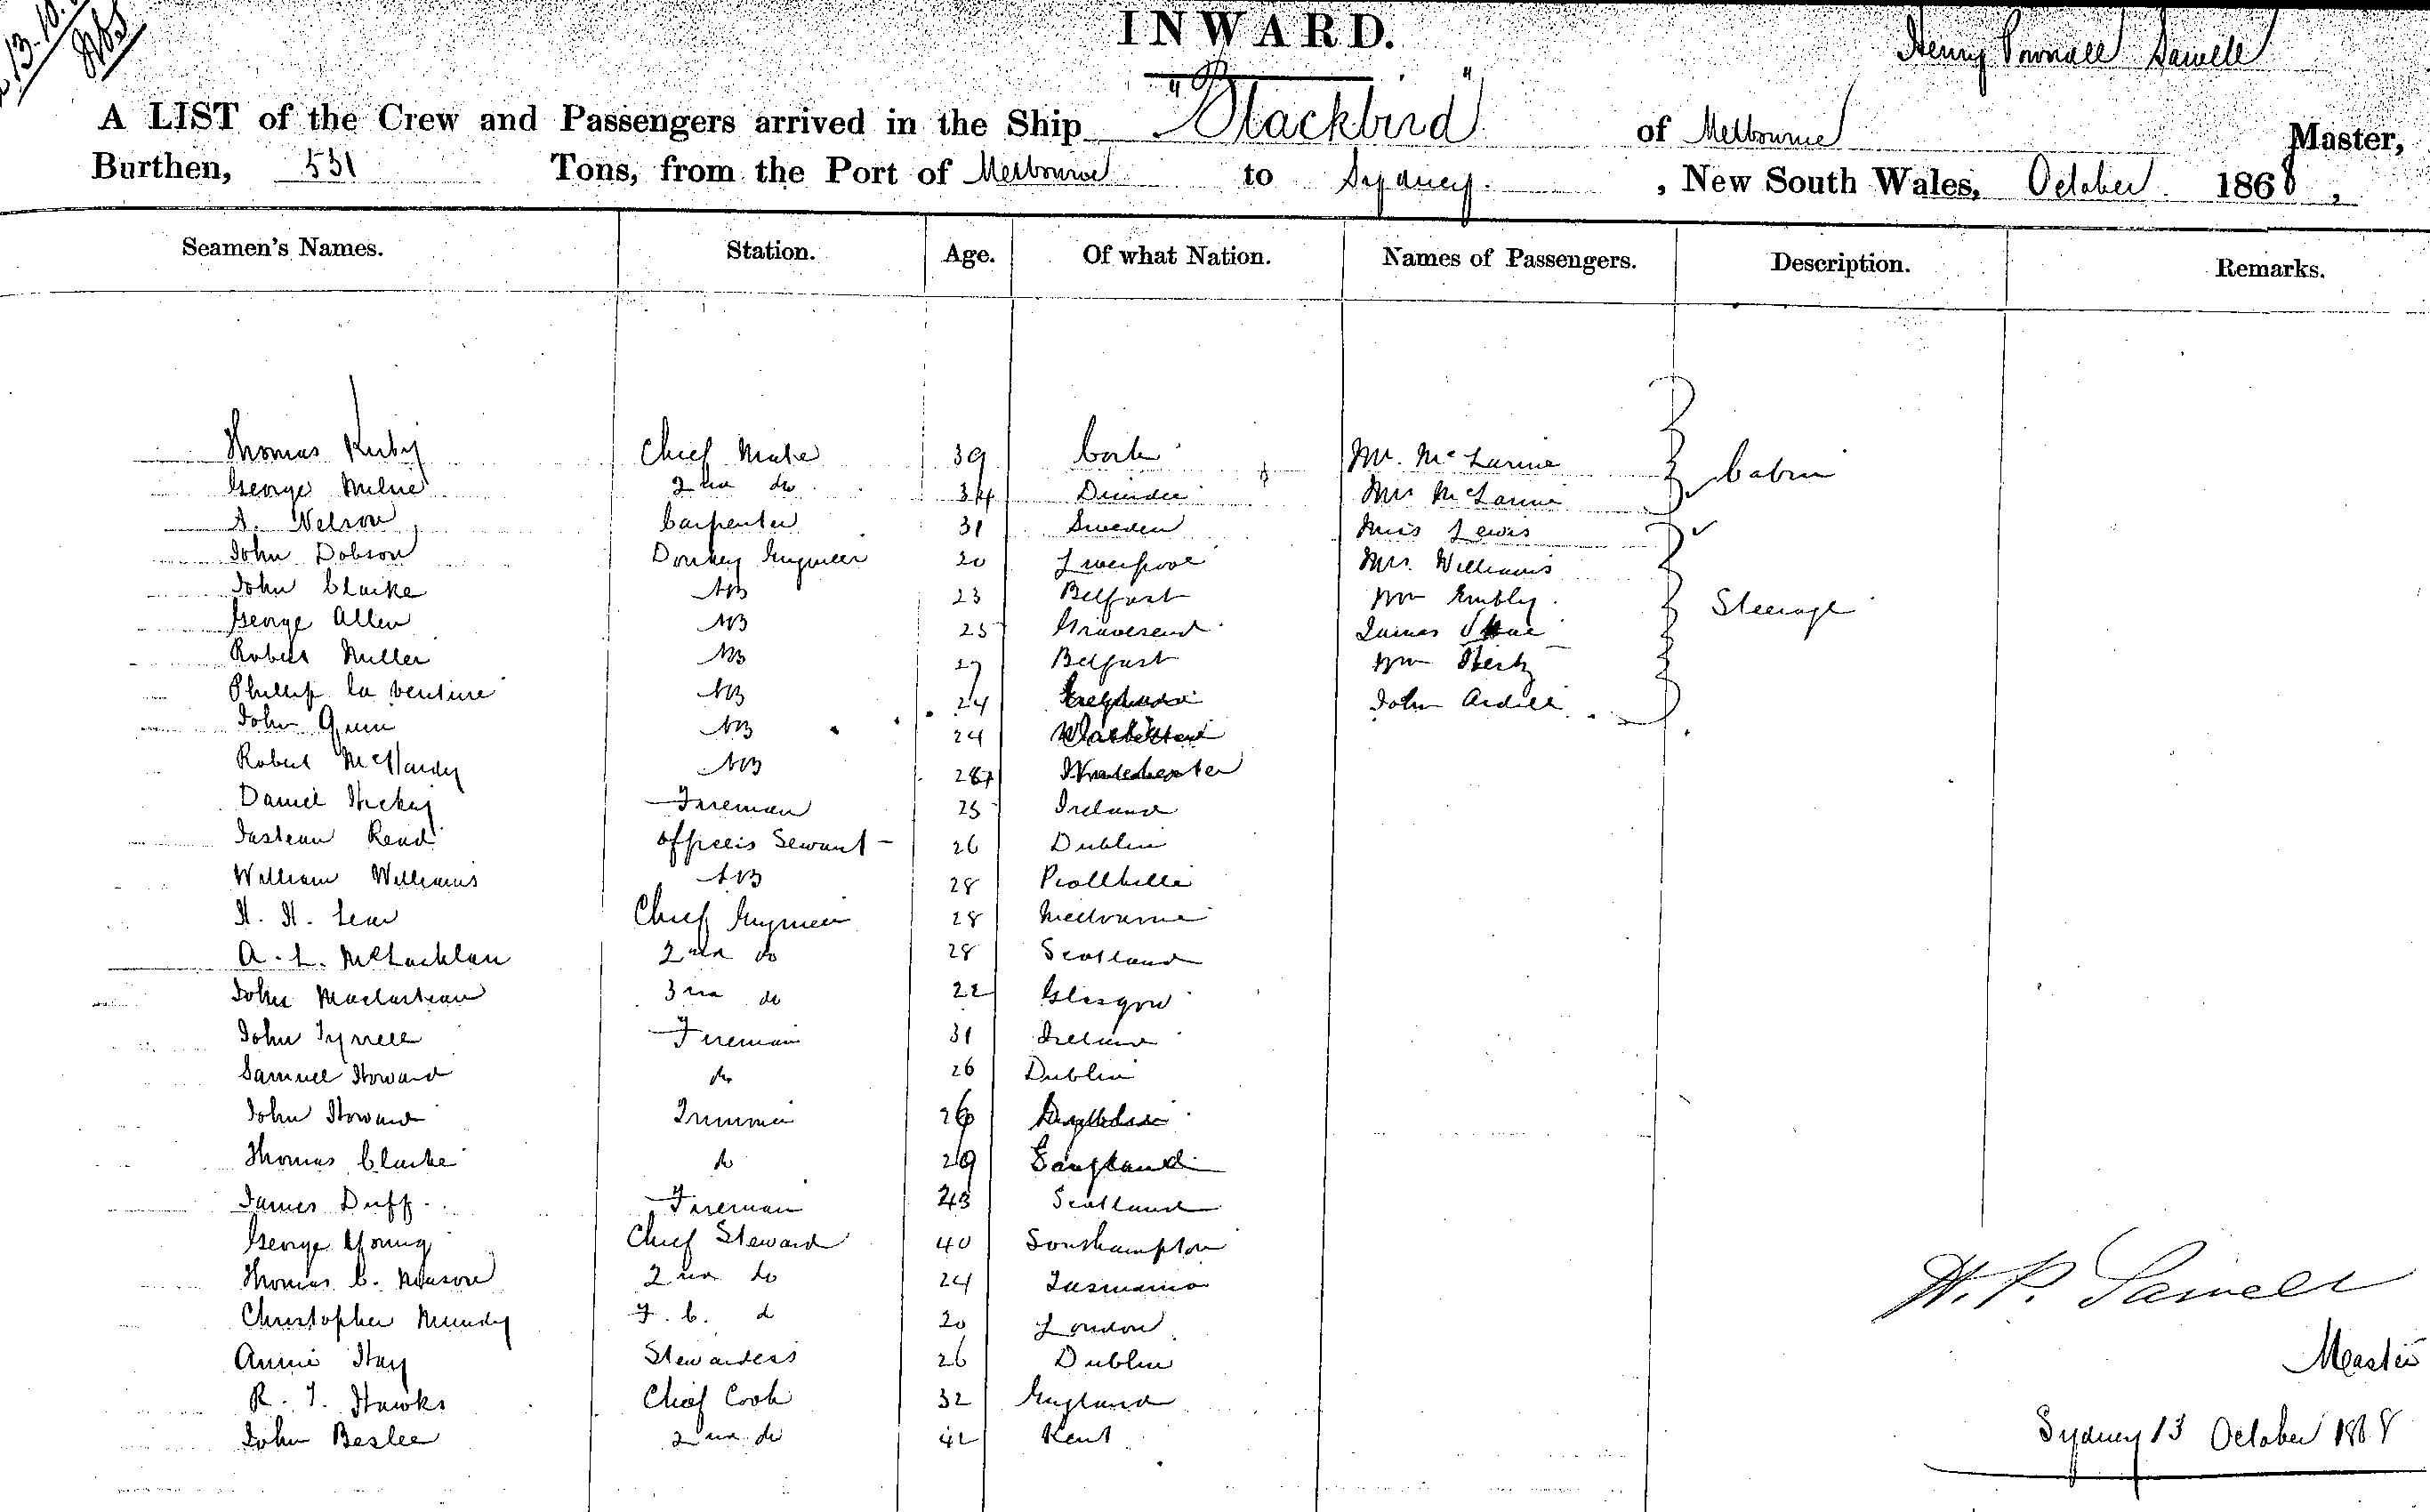 13.10.
INWARD.
Henry Pownall Sawell
A LIST of the Crew and Passengers arrived in the Ship "Blackbird" of Melbourne Master,
Burthen, 531 Tons, from the Port of Melbourne to Sydney. , New South Wales, October 1868,
Seamen's Names. Station. Age. Of what Nation. Names of Passengers. Description. Remarks.
Thomas Kirby Chief Mate 39 Cork Mr. McLarine Cabin
George Milne 2nd do 34 Dundee Mrs McLarine
A. Nelson Carpenter 31 Sweden Miss Lewis
John Dobson Donkey Engineer 20 Liverpool Mrs. Williams
John Clarke AB 23 Belfast Wm Embly Steerage
George Allen AB 25 Gravesend James
Robert Miller AB 27 Belfast Wm
Phillip la Venture AB 24 John Ardill
John Gunn AB 24
Robert McHardy AB
Daniel Hickey Fireman 25 Ireland
Read officers Servant 26 Dublin
William Williams AB 28
H. H. Lear Chief Engineer 28 Melbourne
A. L. McLachlan 2nd do 28 Scotland
John 3rd do 22 Glasgow
John Tyrrell Fireman 31 Ireland
Samuel Howard do 26 Dublin
John Howard Trimmer 26
Thomas Clarke do 29 England
James Duff Fireman 43 Scotland
George Young Chief Steward 40 Southampton
Thomas C. Mason 2nd do 24 Tasmania
Christopher Mundy F. C. d 20 London
Annie Hay Stewardess 26 Dublin
R. T. Hawks Chief Cook 32 England
John Beslee 2nd do 42 Kent
H. P. Sawell
Master
Sydney 13 October 1868